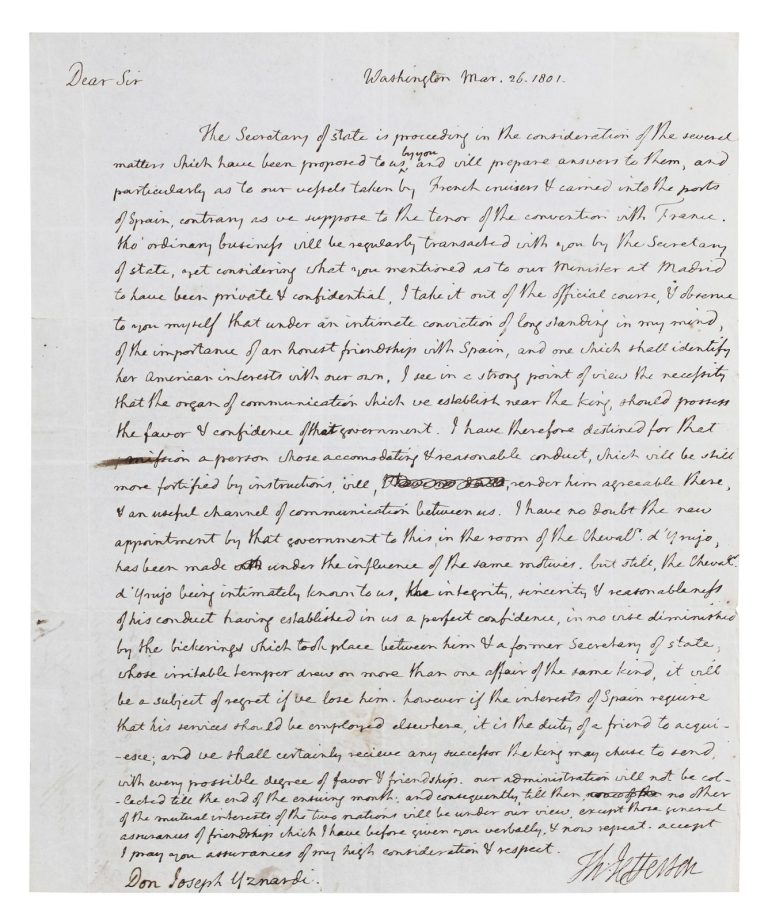 Dear Sir Washington Mar. 26. 1801.
The Secretary of state is proceeding in the consideration of the several
matters which have been proposed to us by you and will prepare answers to them, and
particularly as to our vessels taken by French cruisers & carried into the ports
of Spain, contrary as we suppose to the tenor of the convention with France.
tho' ordinary business will be regularly transacted with you by the Secretary
of state, yet considering what you mentioned as to our Minister at Madrid
to have been private & confidential, I take it out of the official course, & observe
to you myself that under an intimate conviction of long standing in my mind,
of the importance of an honest friendship with Spain, and one which shall identify
her American interests with our own, I see in a strong point of view the necessity
that the organ of communication which we establish near the king, should possess
the favor & confidence of that government. I have therefore destined for that
mission a person whose accomodating & reasonable conduct, which will be still
more fortified by instructions, will, render him agreeable there,
& an useful channel of communication between us. I have no doubt the new
appointment by that government to this in the room of the Chevalr. d'Yrujo,
has been made under the influence of the same motives. but still, the Chevalr.
d'Yrujo being intimately known to us, the integrity, sincerity & reasonableness
of his conduct having established in us a perfect confidence, in no wise diminished
by the bickerings which took place between him & a former Secretary of state,
whose irritable temper drew on more than one affair of the same kind, it will
be a subject of regret if we lose him. however if the interests of Spain require
that his services should be employed elsewhere, it is the duty of a friend to acqui-
-esce; and we shall certainly recieve any successor the king may chuse to send,
with every possible degree of favor & friendship. our administration will not be col-
-lected till the end of the ensuing month. and consequently, till then, none of the no other
of the mutual interests of the two nations will be under our view, except those general
assurances of friendship which I have before given you verbally, & now repeat. accept
I pray you assurances of my high consideration & respect.
Th Jefferson
Don Joseph Yznardi.